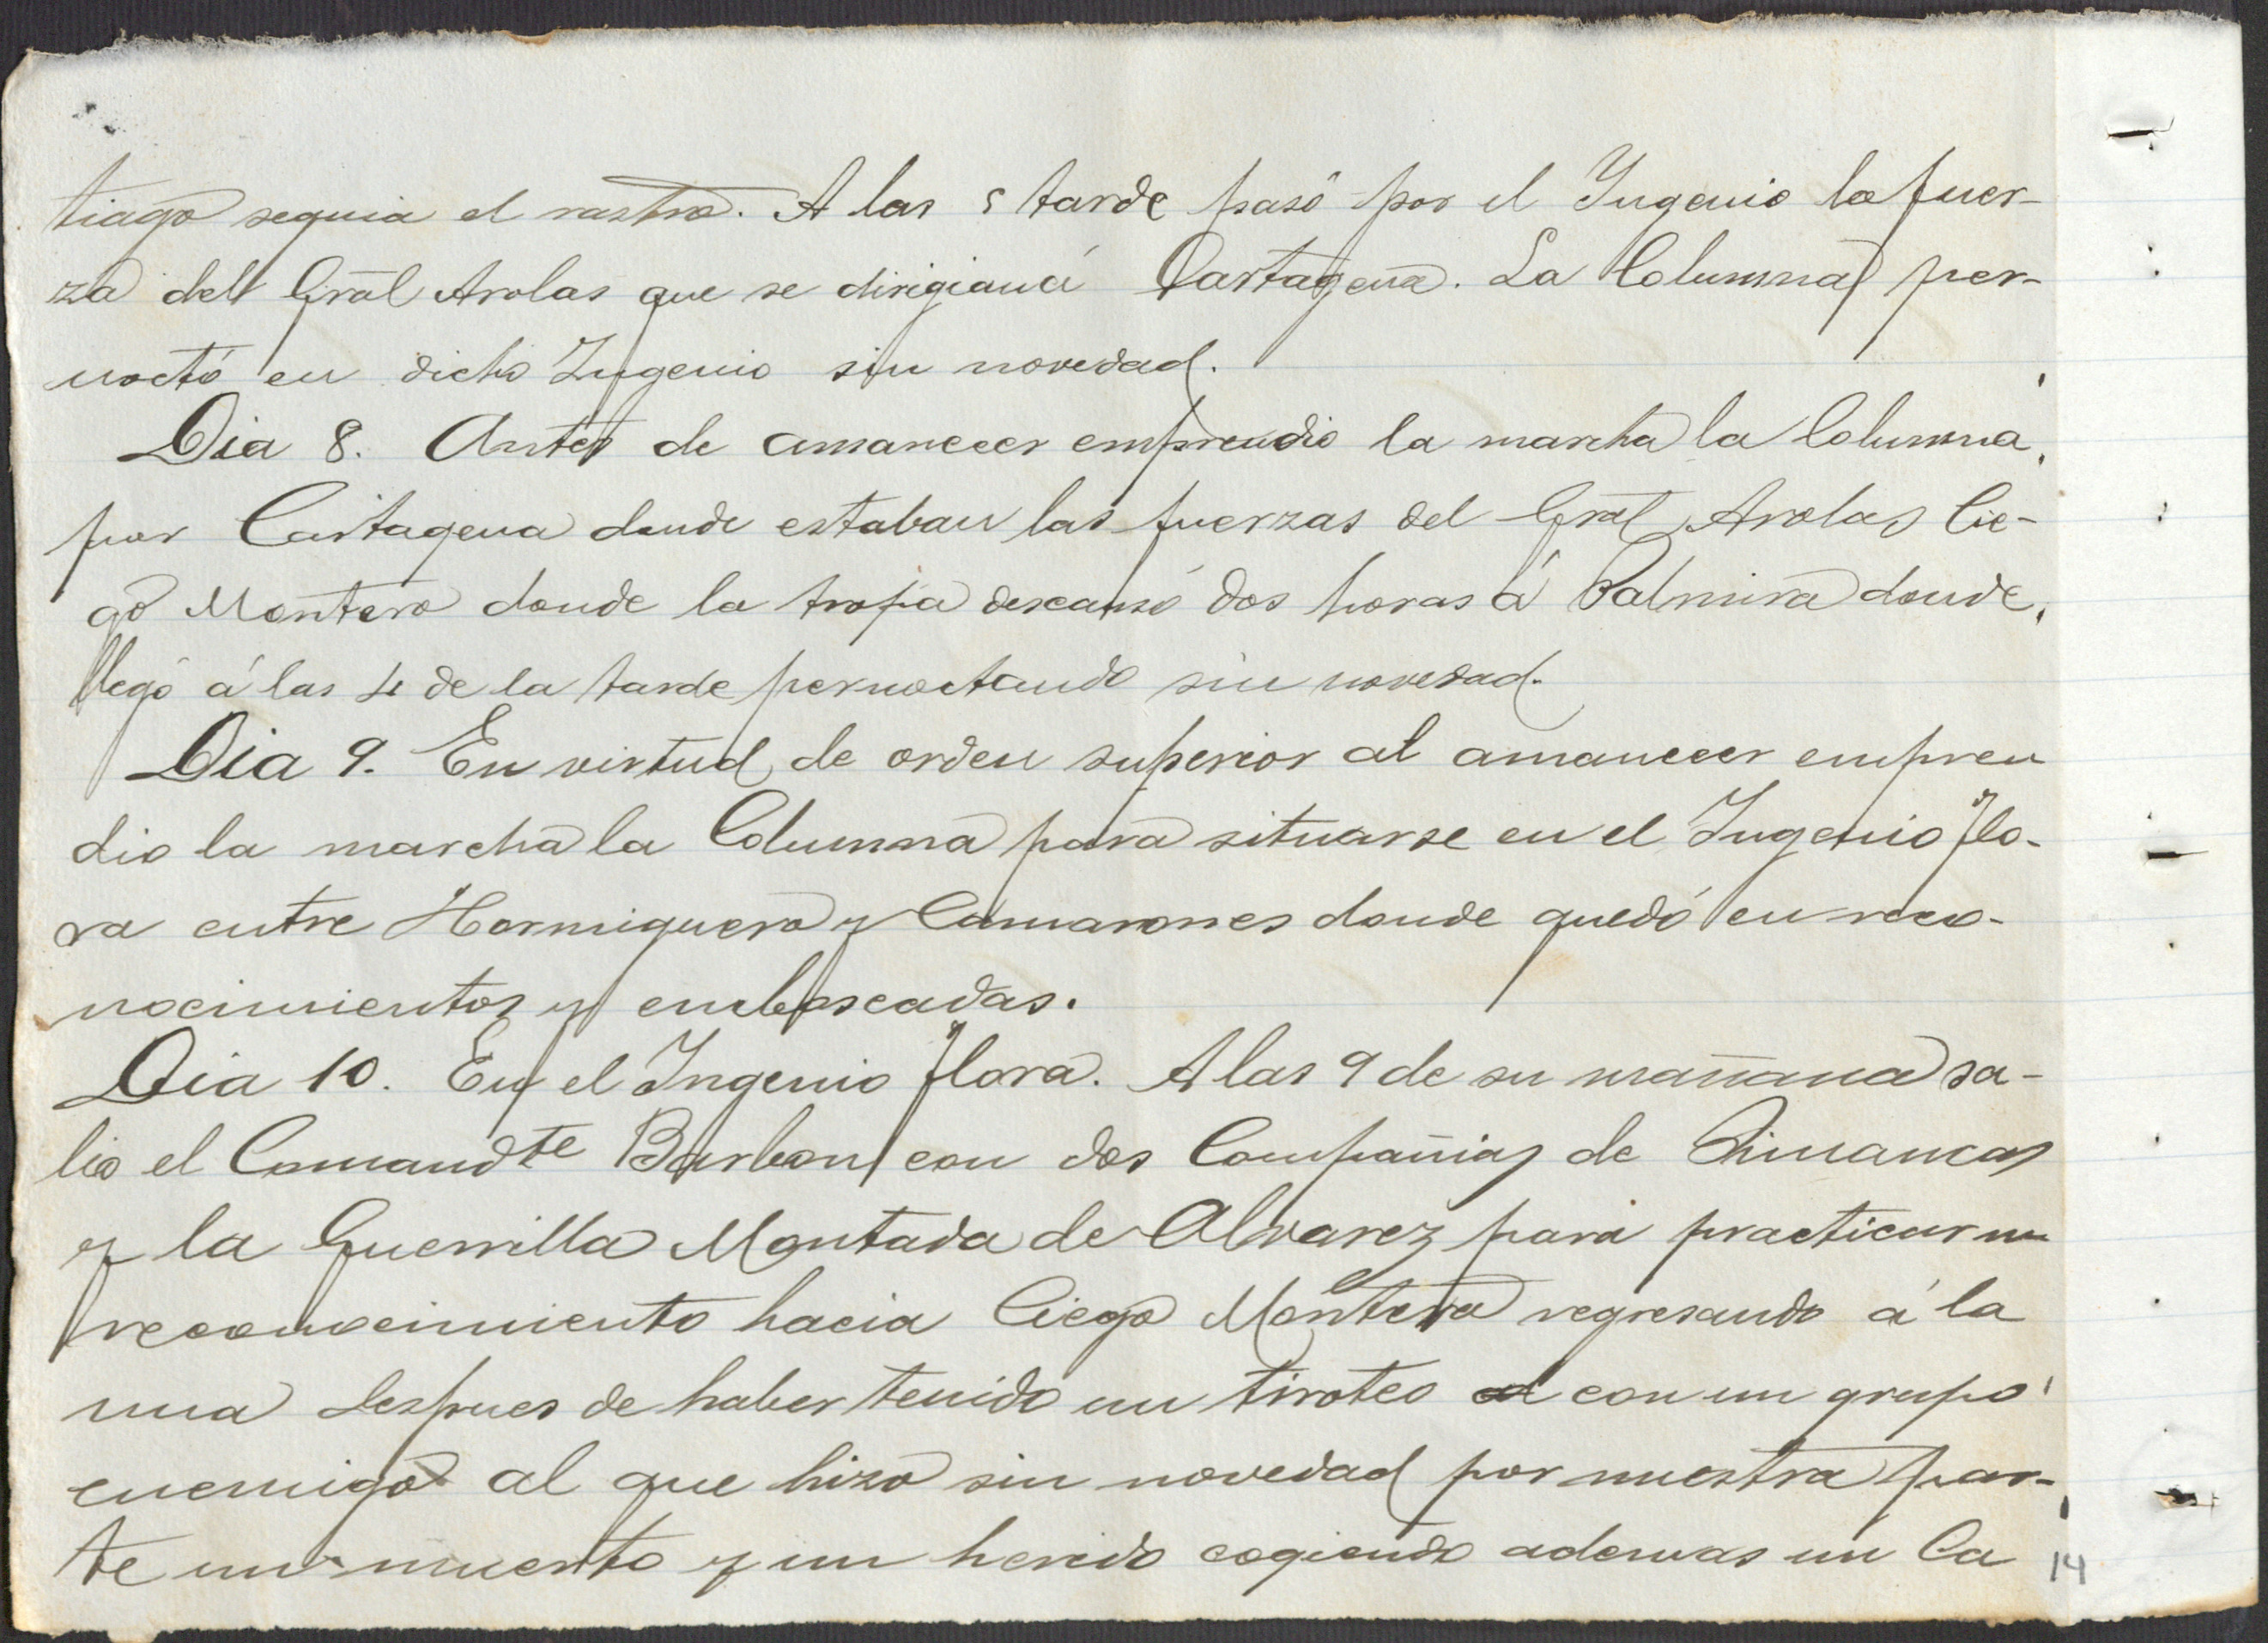 tiago seguia el rastro. A las 5 tarde pasó por el Ingenio la fuer-
za del Gral Arolas que se dirigian á Cartagena. La Columna per-
noctó en dicho Ingenio sin novedad.
Dia 8. Antes de amanecer emprendio la marcha la Columna
por Cartagena donde estaban las fuerzas del Gral Arolas Cie-
go Montero donde la tropa descansó dos horas á Palmira donde
llegó á las 4 de la tarde pernoctando sin novedad.
Dia 9. En virtud de orden superior al amanecer empren
dio la marcha la Columna para situarse en el Ingenio Flo-
ra entre Hormiguero y Camarones donde quedó en reco-
nocimientos y emboscadas.
Dia 10. En el Ingenio Flora. A las 9 de su mañana sa-
lio el Comandte Barbon con dos Compañias de Simancas
y la Guerrilla Montada de Alvarez para practicar un
reconocimiento hacia Ciego Montero regresando á la
una despues de haber tenido un tiroteo con un grupo
enemigo al que hizo sin novedad por nuestra par-
te un muerto y un herido cogiendo ademas un Ca
14